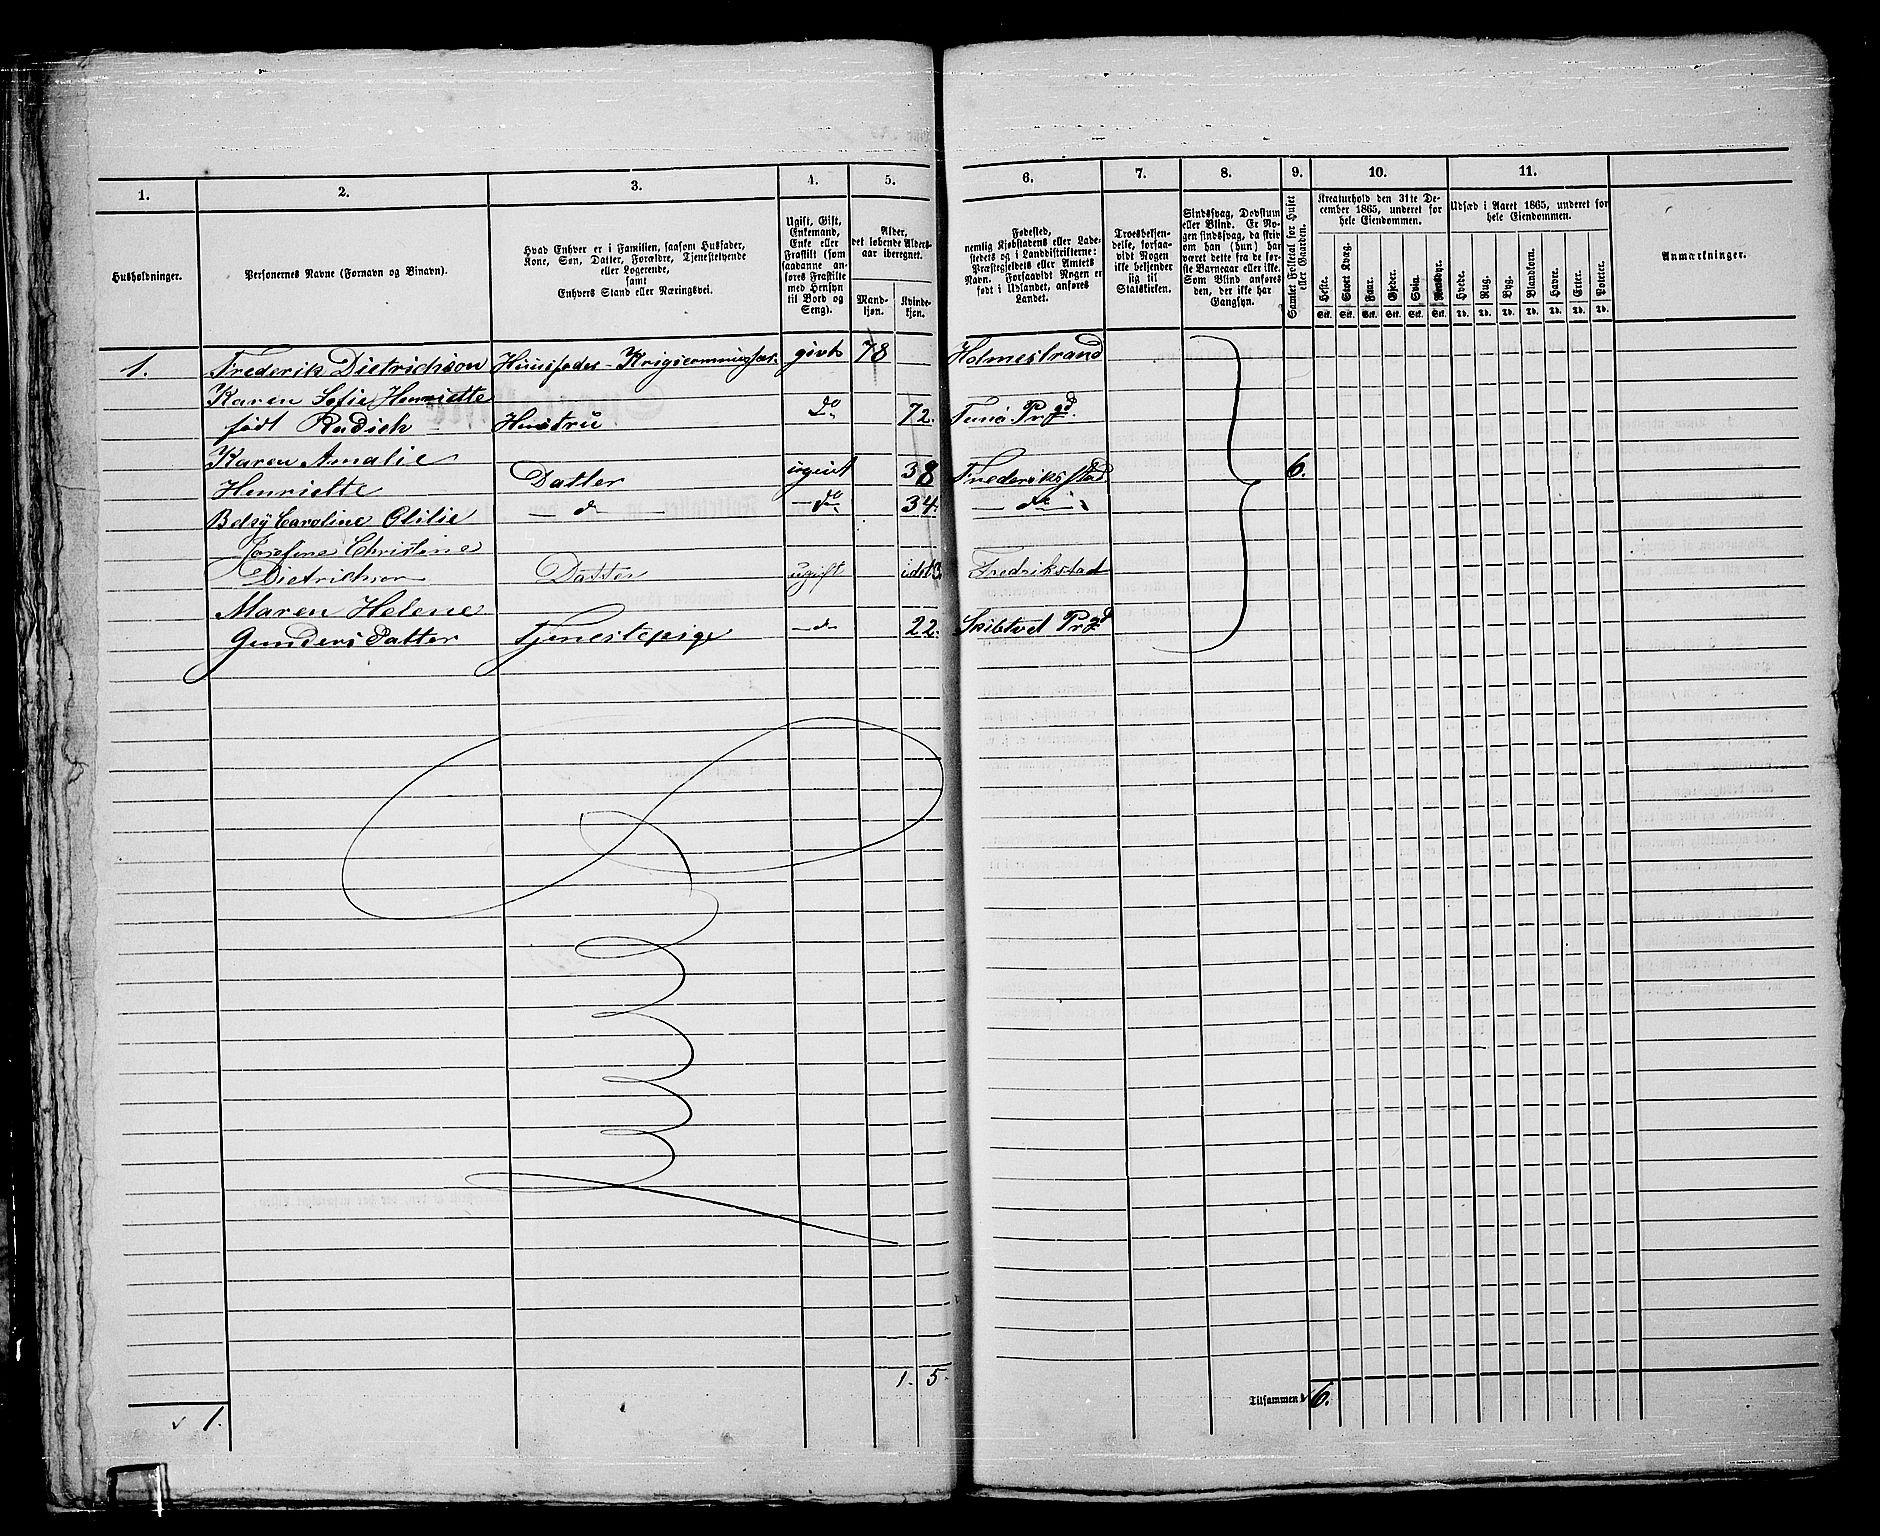 1. 2. 3. 4. 5. 6. 7. 8. 9. 10. 11.
Husholdninger.
Personernes Navne (Fornavn og Binavn).
Hvad Enhver er i Familien, saasom Husfader,
Kone, Søn, Datter, Forældre, Tjenestetyende
eller Logerende,
samt
Enhvers Stand eller Næringsvei.
Ugift, Gift,
Enkemand,
Enke eller
Fraskilt (som
saadanne an-
føres Fraskilte
med Hensyn
til Bord og
Seng).
Alder,
det løbende Alders-
aar iberegnet.
Mand-
kjøn.
Kvinde-
kjøn.
Fødested,
nemlig Kjøbstadens eller Lade-
stedets og i Landdistrikterne:
Præstegjeldets eller Amtets
Navn. Forsaavidt Nogen er
født i Udlandet, anføres
Landet.
Troesbekjen-
delse, forsaa-
vidt Nogen
ikke bekjender
sig til
Statskirken.
Sindssvag, Døvstum
eller Blind. Er No-
gen sindssvag, da skriv
om han (hun) har
været dette fra de før-
ste Barneaar eller ikke.
Som Blind anføres
den, der ikke har
Gangsyn.
Samlet Folketal for Huset
eller Gaarden.
Kreaturhold den 31te De-
cember 1865, underet for
hele Eiendommen.
Heste. Stort Kvæg. Faar. Gjeder. Svin. Rensdyr.
Stk. Stk. Stk. Stk. Stk. Stk.
Udsæd i Aaret 1865, underet for
hele Eiendommen.
Hvede. Rug. Byg. Blandkorn. Havre. Erter. Poteter.
Td. Td. Td. Td. Td. Td. Td.
Anmærkninger.
1. Frederik Dietrichson Huusfader - givt 78 Holmestrand
Karen Sofie Henriette
født Radich Hustru do 72. Prgd.
Karen Amalie
Henriette Datter ugivt 38 Frederiksstad 6.
Betsy Caroline Otilie - d - - do - 34. - do -
Josefine Christine
Dietrichson Datter ugift Fredrikstad
Maren Helene
Gunders Datter Tjenestepige - d - 22. Skibtvet Prgd
1. 5.
1.
Tilsammen 6.